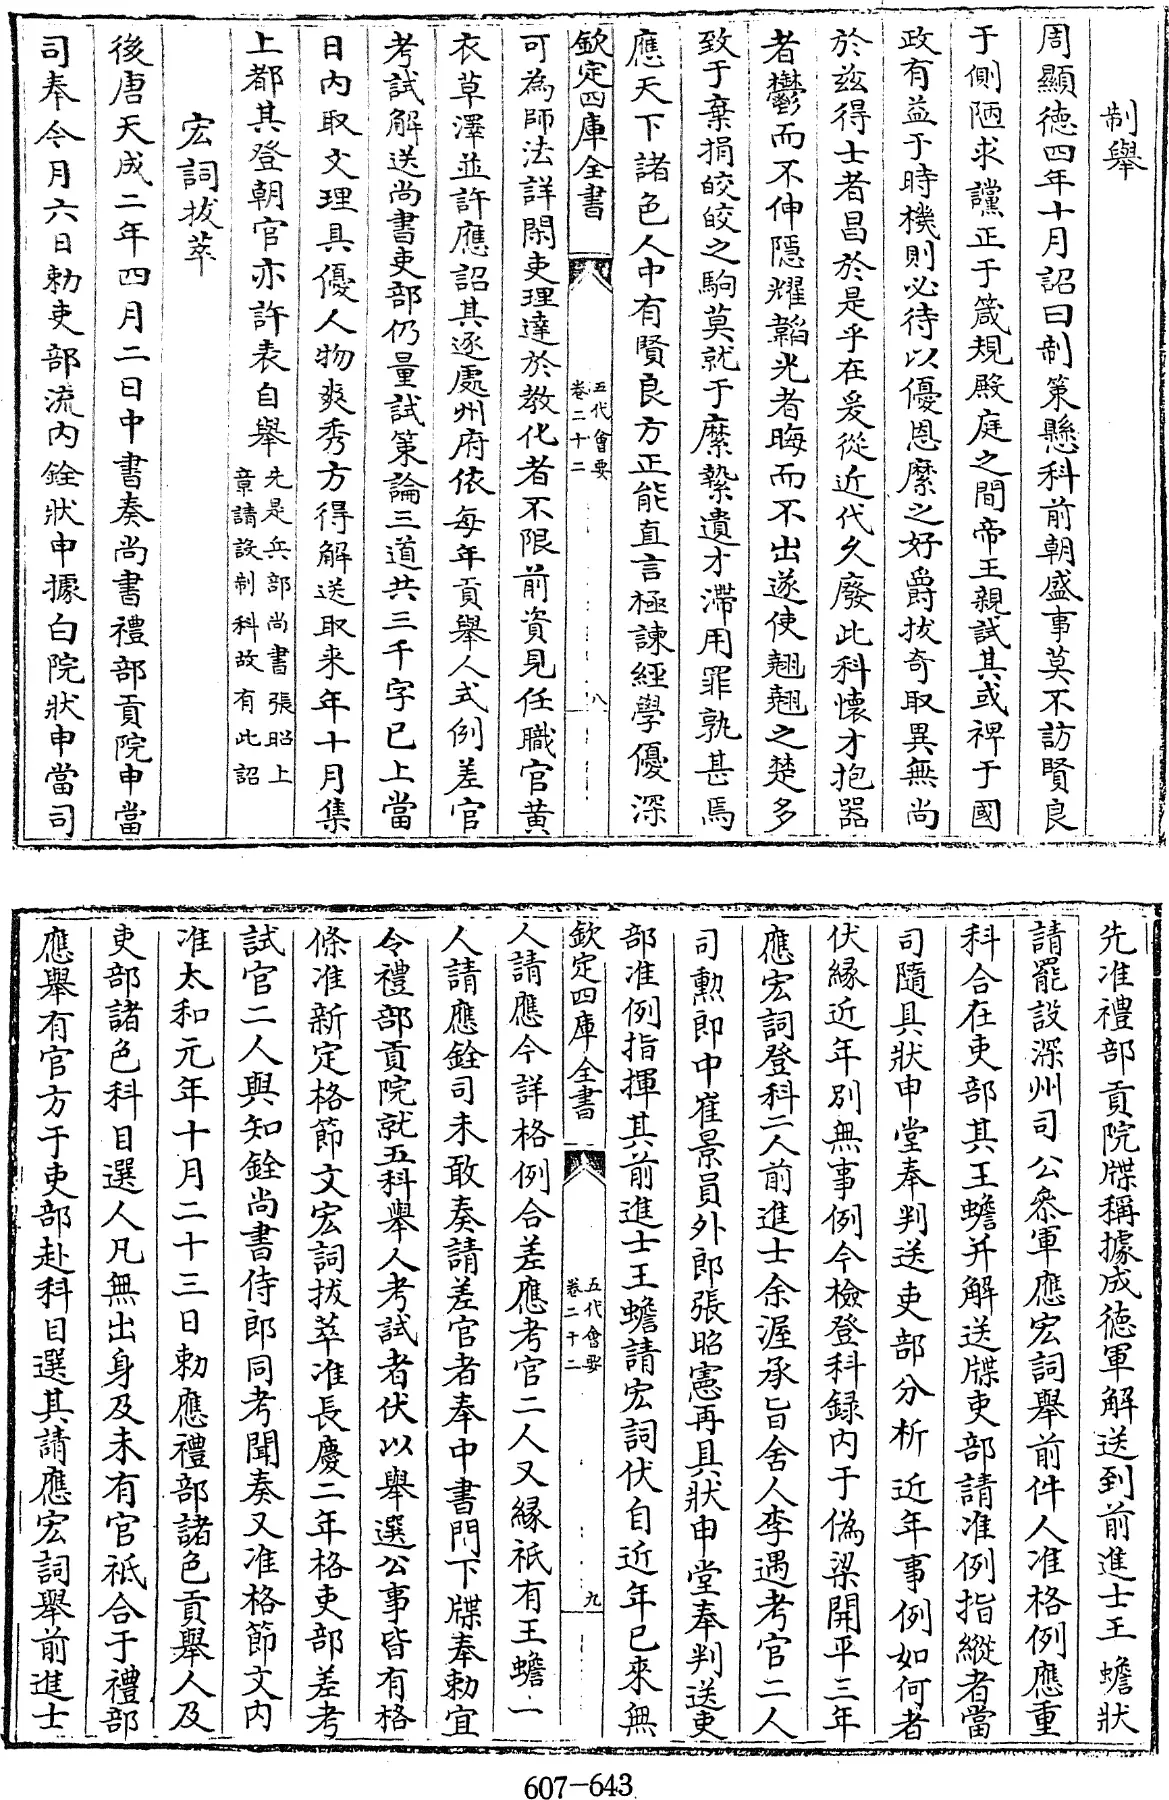 制舉
周顯徳四年十月詔曰制策懸科前朝盛事莫不訪賢良
于側陋求讜正于箴規殿庭之間帝王親試其或裨于國
政有益于時機則必待以優恩縻之好爵拔竒取異無尚
於兹得士者昌於是乎在爰從近代久廢此科懐才抱器
者鬱而不伸隠耀韜光者晦而不出遂使翹翹之楚多
致于棄捐皎皎之駒莫就于縻縶遺才滯用罪孰甚焉
應天下諸色人中有賢良方正能直言極諫經學優深
欽定四庫全書
五代會要
卷二十二
八
可為師法詳閑吏理達於教化者不限前資見任職官黄
衣草澤並許應詔其逐處州府依每年貢舉人式例差官
考試解送尚書吏部仍量試策論三道共三千字已上當
日内取文理具優人物爽秀方得解送取来年十月集
上都其登朝官亦許表自舉先是兵部尚書張昭上
章請設制科故有此詔
宏詞拔萃
後唐天成二年四月二日中書奏尚書禮部貢院申當
司奉今月六日勅吏部流内銓狀申據白院狀申當司
先准禮部貢院牒稱據成徳軍解送到前進士王蟾狀
請罷設深州司公叅軍應宏詞舉前件人准格例應重
科合在吏部其王蟾并解送牒吏部請准例指縱者當
司隨具狀申堂奉判送吏部分析近年事例如何者
伏縁近年别無事例今檢登科録内于偽梁開平三年
應宏詞登科二人前進士余渥承旨舍人李遇考官二人
司勲郎中崔景員外郎張昭憲再具狀申堂奉判送吏
部准例指揮其前進士王蟾請宏詞伏自近年已來無
欽定四庫全書
五代會要
卷二十二
九
人請應今詳格例合差應考官二人又縁祇有王蟾一
人請應銓司未敢奏請差官者奉中書門下牒奉勅宜
令禮部貢院就五科舉人考試者伏以舉選公事皆有格
條准新定格節文宏詞拔萃准長慶二年格吏部差考
試官二人與知銓尚書侍郎同考聞奏又准格節文内
准太和元年十月二十三日勅應禮部諸色貢舉人及
吏部諸色科目選人凡無出身及未有官祗合于禮部
應舉有官方于吏部赴科目選其請應宏詞舉前進士
607-643